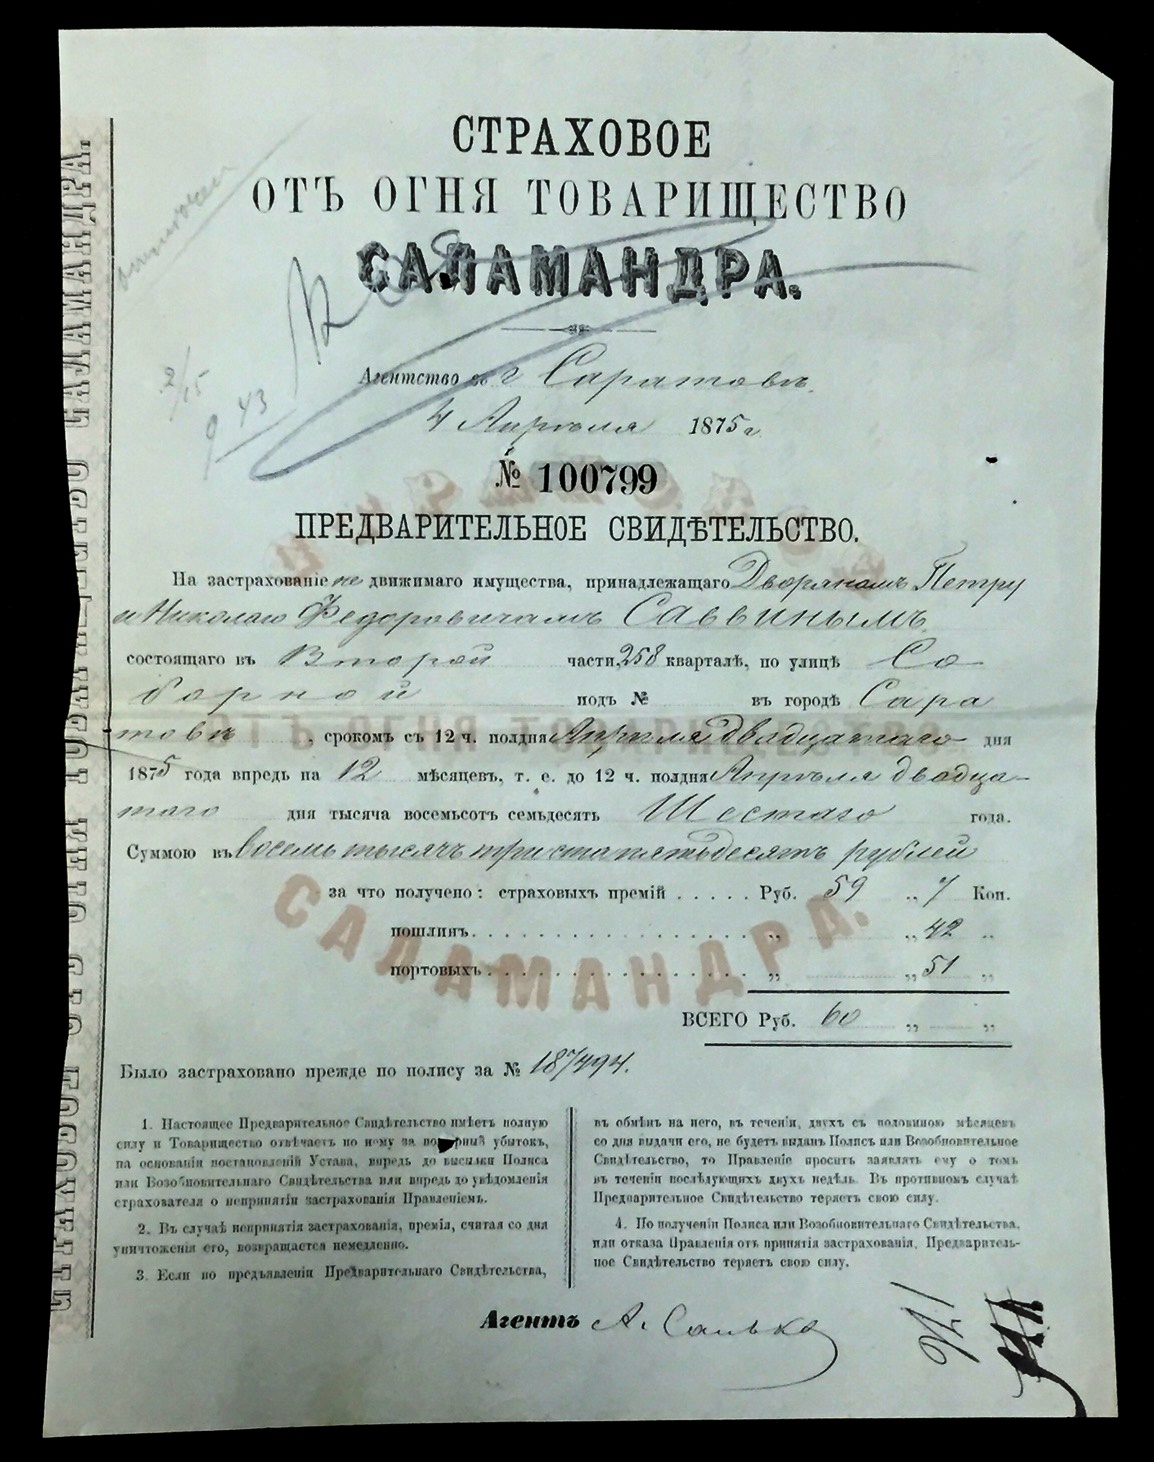 СТРАХОВОЕ
ОТЪ ОГНЯ ТОВАРИЩЕСТВО
САЛАМАНДРА.
Агентство въ г Саратовѣ.
4 Апрѣля 1875 г
№ 100799
ПРЕДВАРИТЕЛЬНОЕ СВИДѢТЕЛЬСТВО.
На застрахованіе не движимаго имущества, принадлежащаго Дворянамъ Петру
и Николаю Федоровичамъ Саввинымъ
состоящаго въ Второй части, 258 кварталѣ, по улицѣ Со
борной подъ № въ городѣ Сара
товѣ, срокомъ съ 12 ч. полдня Апрѣля двадцатаго дня
1875 года впредь на 12 мѣсяцевъ, т. е. до 12 ч. полдня Апрѣля двадца-
таго дня тысяча восемьсотъ семьдесятъ Шестаго года.
Суммою въ восемь тысячъ триста пятьдесятъ рублей
за что получено: страховыхъ премій . . . . . Руб. 59 „ 7 Коп.
пошлинъ. . . . . . . . . . . . . . . . „ „ 42 „
портовыхъ . . . . . . . . . . . . . . . „ „ 51 „
ВСЕГО Руб. 60 „ „
Было застраховано прежде по полису за № 187494.
1. Настоящее Предварительное Свидѣтельство имѣетъ полную
силу и Товарищество отвѣчаетъ по нему за пожарный убытокъ,
на основаніи постановленій Устава, впредь до высылки Полиса
или Возобновительнаго Свидѣтельства или впредь до увѣдомленія
страхователя о непринятіи застрахованія Правленіемъ.
2. Въ случаѣ непринятія застрахованія, премія, считая со дня
уничтоженія его, возвращается немедленно.
3. Если по предъявленіи Предварительнаго Свидѣтельства,
въ обмѣнъ на него, въ теченіи, двухъ съ половиною мѣсяцевъ
со дня выдачи его, не будетъ выданъ Полисъ или Возобновительное
Свидѣтельство, то Правленіе проситъ заявлять ему о томъ
въ теченіи послѣдующихъ двухъ недѣль. Въ противномъ случаѣ
Предварительное Свидѣтельство теряетъ свою силу.
4. По полученіи Полиса или Возобновительнаго Свидѣтельства,
или отказа Правленія отъ принятія застрахованія, Предваритель-
ное Свидѣтельство теряетъ свою силу.
Агентъ А. Салько
САЛАМАНДРА.